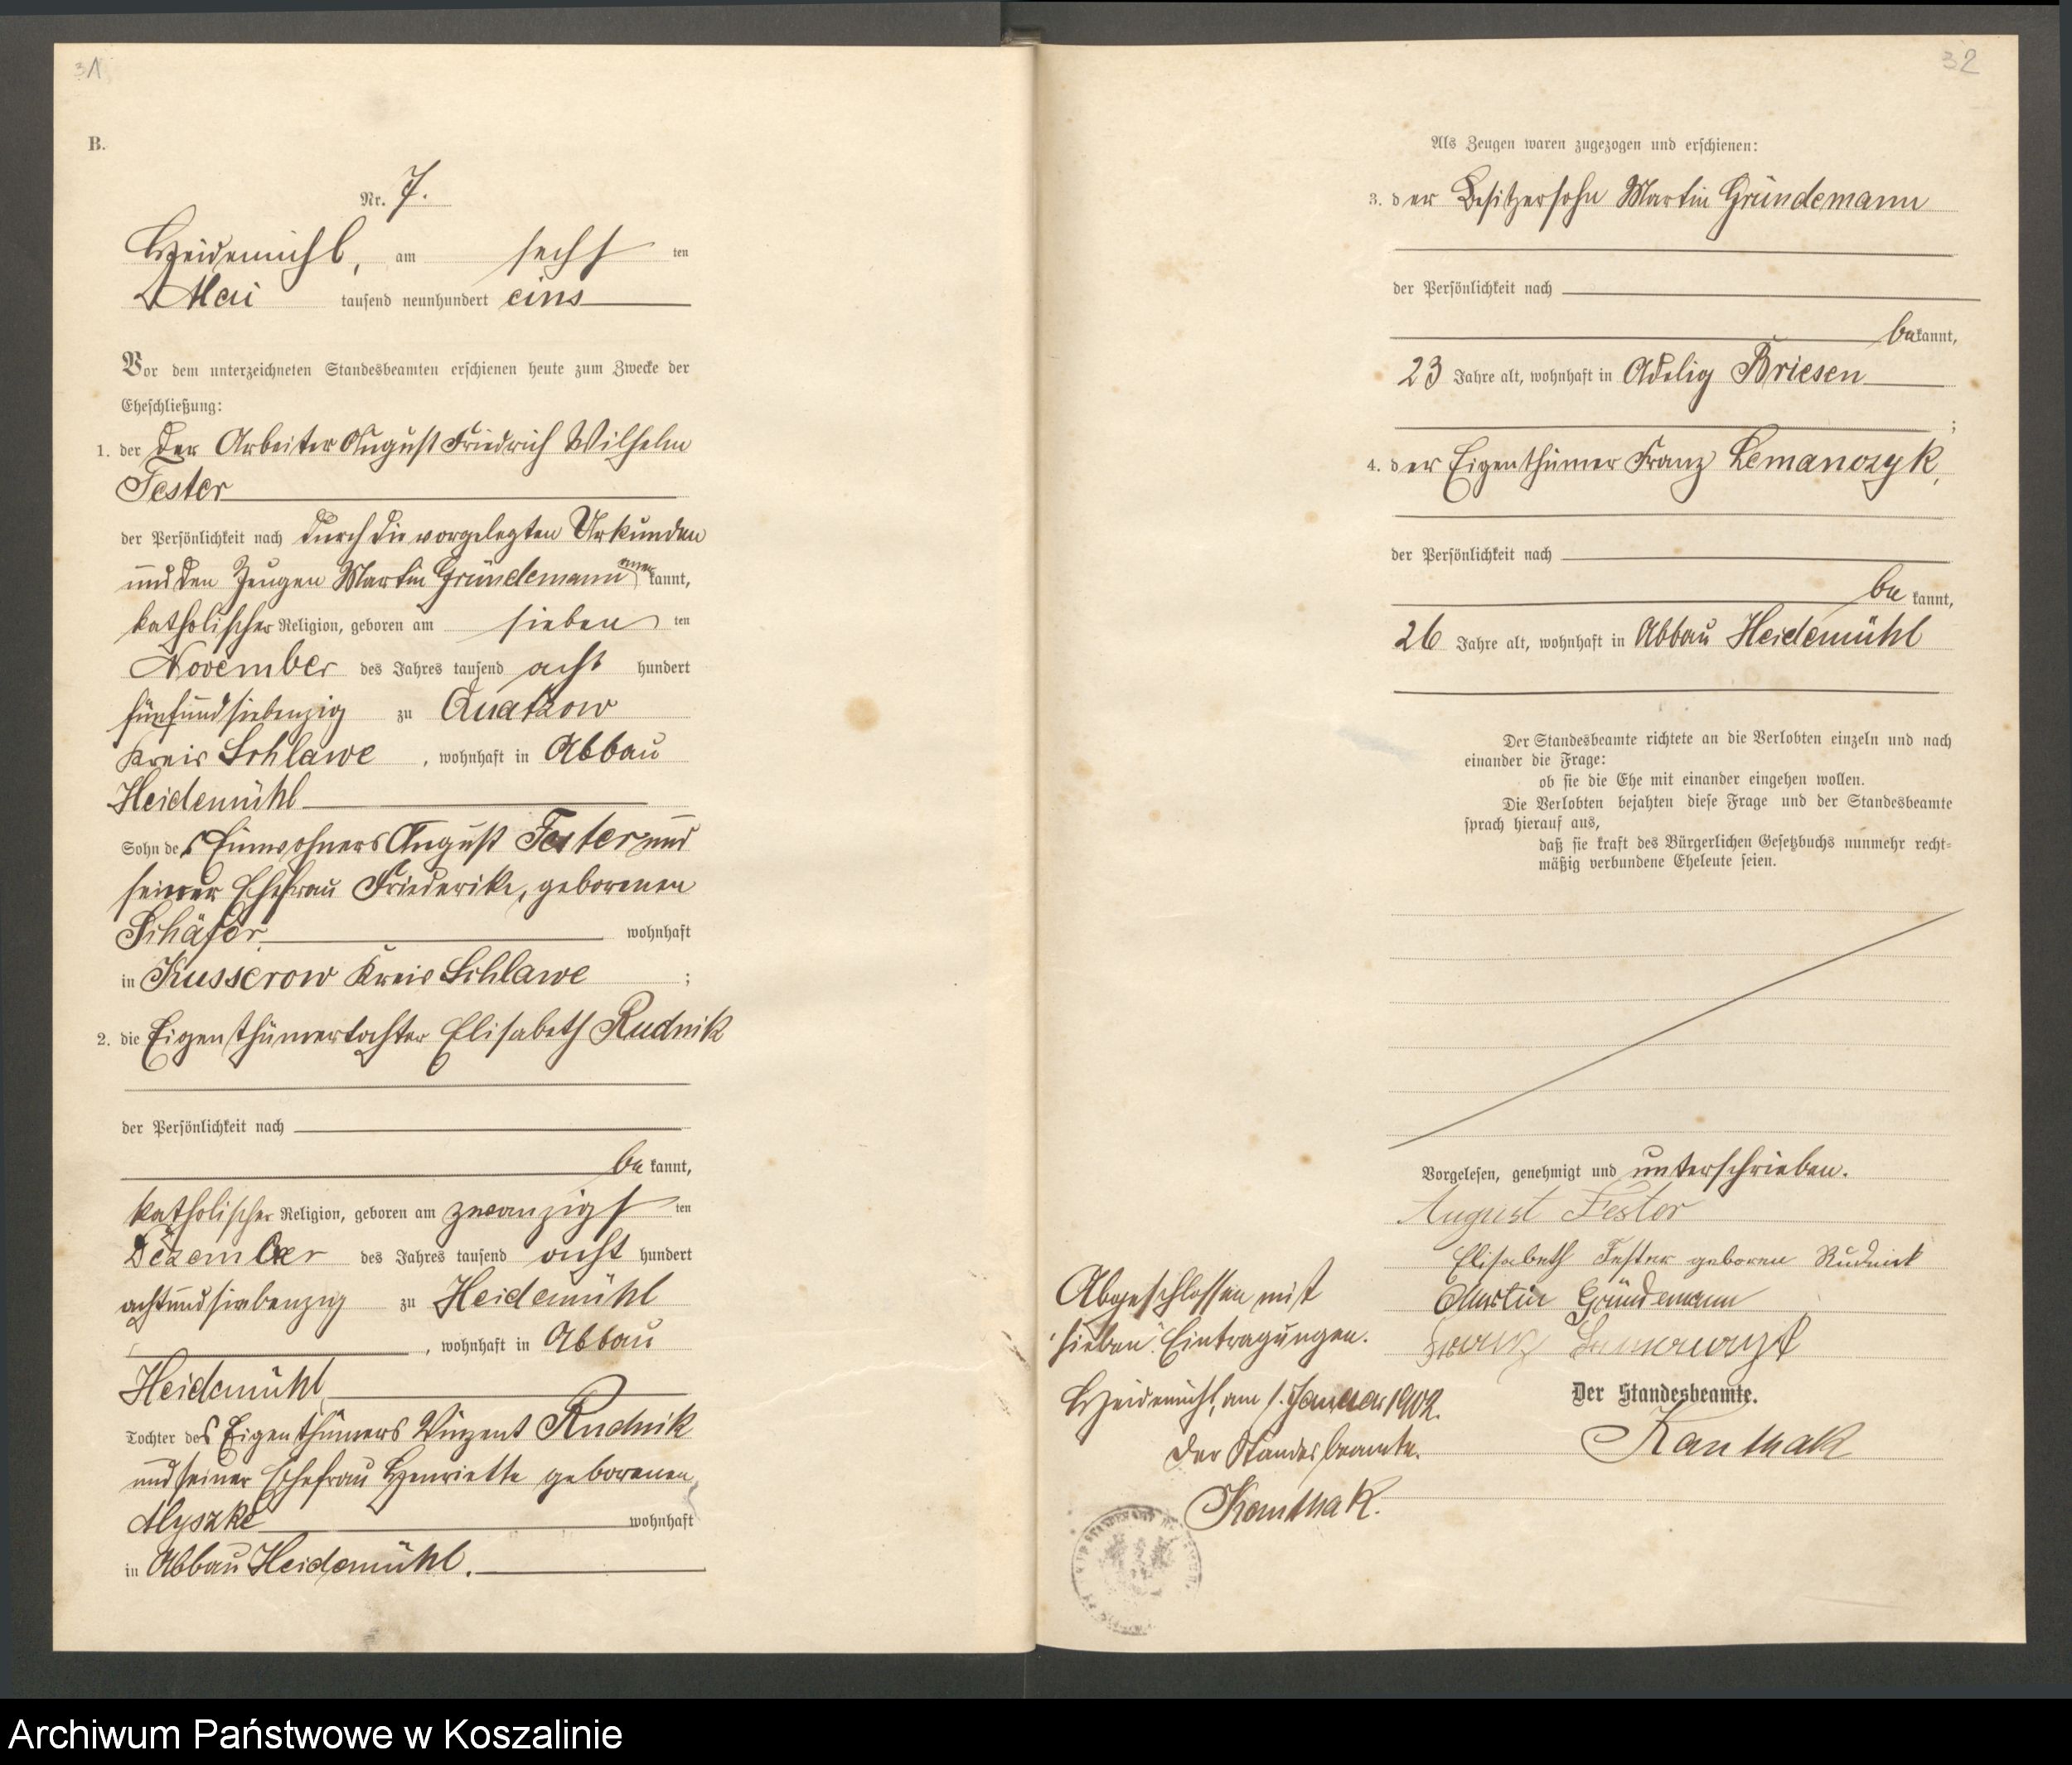 31
B.
Nr. 7.
Heidemühl, am sechs ten
Mai tausend neunhundert eins
Vor dem unterzeichneten Standesbeamten erschienen heute zum Zwecke der
Eheschließung:
1. der Der Arbeiter August Friedrich Wilhelm
Fester
der Persönlichkeit nach durch die vorgelegten Urkunden
und den Zeugen Martin Gründemann kannt,
katholischer Religion, geboren am sieben ten
November des Jahres tausend acht hundert
fünfundsiebenzig zu Quatzow
Kreis Schlawe, wohnhaft in Abbau
Heidemühl
Sohn des Einwohners August Fester und
seiner Ehefrau Friederike, geborenen
Schäfer wohnhaft
in Kusserow Kreis Schlawe ;
2. die Eigenthümertochter Elisabeth Rudnik
der Persönlichkeit nach
be kannt,
katholischer Religion, geboren am zwanzigs ten
Dezember des Jahres tausend acht hundert
achtundsiebenzig zu Heidemühl
, wohnhaft in Abbau
Heidemühl
Tochter des Eigenthümers Vinzent Rudnik
und seiner Ehefrau Henriette geborenen
wohnhaft
in Abbau Heidemühl.
32
Als Zeugen waren zugezogen und erschienen:
3. der Besitzersohn Martin Gründemann
der Persönlichkeit nach
bekannt,
23 Jahre alt, wohnhaft in Adelig Briesen
;
4. der Eigenthümer Franz Lemanczyk,
der Persönlichkeit nach
be kannt,
26 Jahre alt, wohnhaft in Abbau Heidemühl
Der Standesbeamte richtete an die Verlobten einzeln und nach
einander die Frage:
ob sie die Ehe mit einander eingehen wollen.
Die Verlobten bejahten diese Frage und der Standesbeamte
sprach hierauf aus,
daß sie kraft des Bürgerlichen Gesetzbuchs nunmehr recht-
mäßig verbundene Eheleute seien.
Vorgelesen, genehmigt und unterschrieben.
August Fester
Elisabeth Fester geboren Rudnik
Martin Gründemann
Franz Lemanczyk
Der Standesbeamte.
Kanthak
Abgeschlossen mit
sieben Eintragungen.
Heidemühl, am 1. Januar 1902.
Der Standesbeamte.
Kanthak.
Archiwum Państwowe w Koszalinie